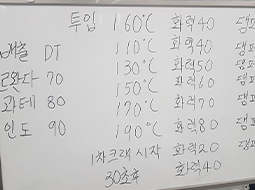 투입 160℃ 화력40 댐퍼
배출 DT 110℃ 화력40 댐
르완다 70 130℃ 화력50 댐
과테 80 150℃ 화력60 댐
인도 90 170℃ 화력70 댐퍼
190℃ 화력80 댐퍼
1차크랙 시작 화력20 댐퍼
30초후 화력40